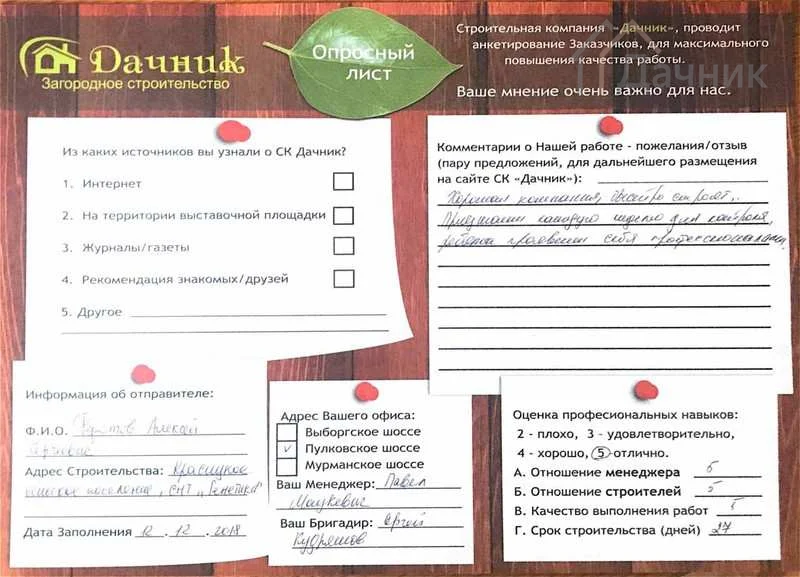 Дачник
Загородное строительство
Опросный
лист
Строительная компания «Дачник», проводит
анкетирование Заказчиков, для максимального
повышения качества работы.
Ваше мнение очень важно для нас.
Дачник
Из каких источников вы узнали о СК Дачник?
1. Интернет
2. На территории выставочной площадки
3. Журналы/газеты
4. Рекомендация знакомых/друзей
5. Другое
Комментарии о Нашей работе - пожелания/отзыв
(пару предложений, для дальнейшего размещения
на сайте СК «Дачник»):
Хорошая компания, быстро строят.
каждую неделю для контроля,
ребята проявили себя профессионалами
Информация об отправителе:
Ф.И.О. Алексей
Адрес Строительства:
поселение, СНТ „Генетика"
Дата Заполнения 12 . 12 . 2018
Адрес Вашего офиса:
Выборгское шоссе
v Пулковское шоссе
Мурманское шоссе
Ваш Менеджер: Павел
Ваш Бригадир: Сергей
Кудряшов
Оценка професиональных навыков:
2 - плохо, 3 - удовлетворительно,
4 - хорошо, 5 - отлично.
А. Отношение менеджера 5
Б. Отношение строителей 5
В. Качество выполнения работ 5
Г. Срок строительства (дней) 27